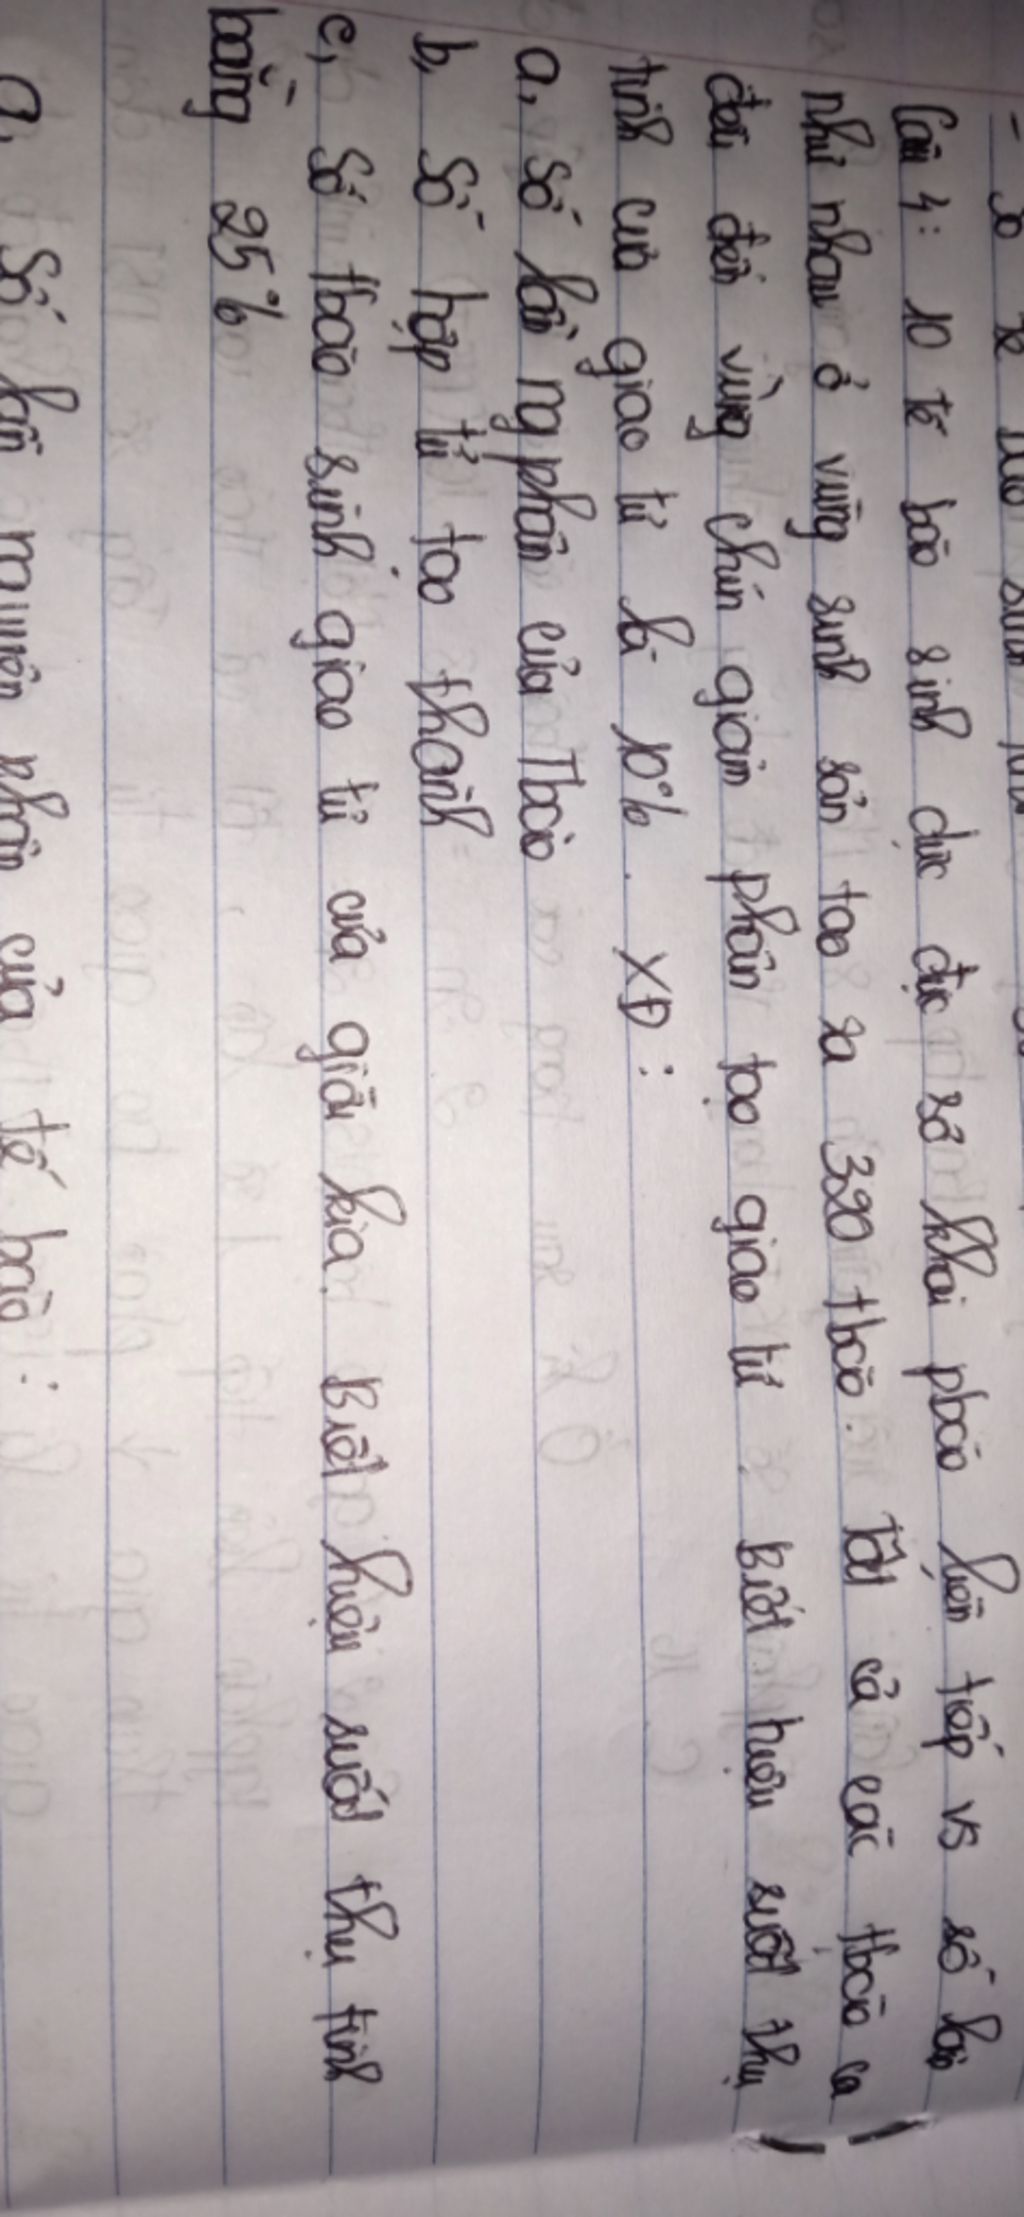 Câu 4: 10 tế bào sinh dục đực sơ khai pbào liên tiếp vs số lần
như nhau ở vùng sinh sản tạo ra 320 tbào. Tất cả các tbào con
đều đến vùng chín giảm phân tạo giao tử. Biết hiệu suất thụ
tinh của giao tử là 10%. XĐ:
a, Số lần ng phân của Tbào
b, Số hợp tử tạo thành
c, Số tbào sinh giao tử của giới kia. Biết hiệu suất thụ tinh
bằng 25%
a, Số lần nguyên phân của tế bào: